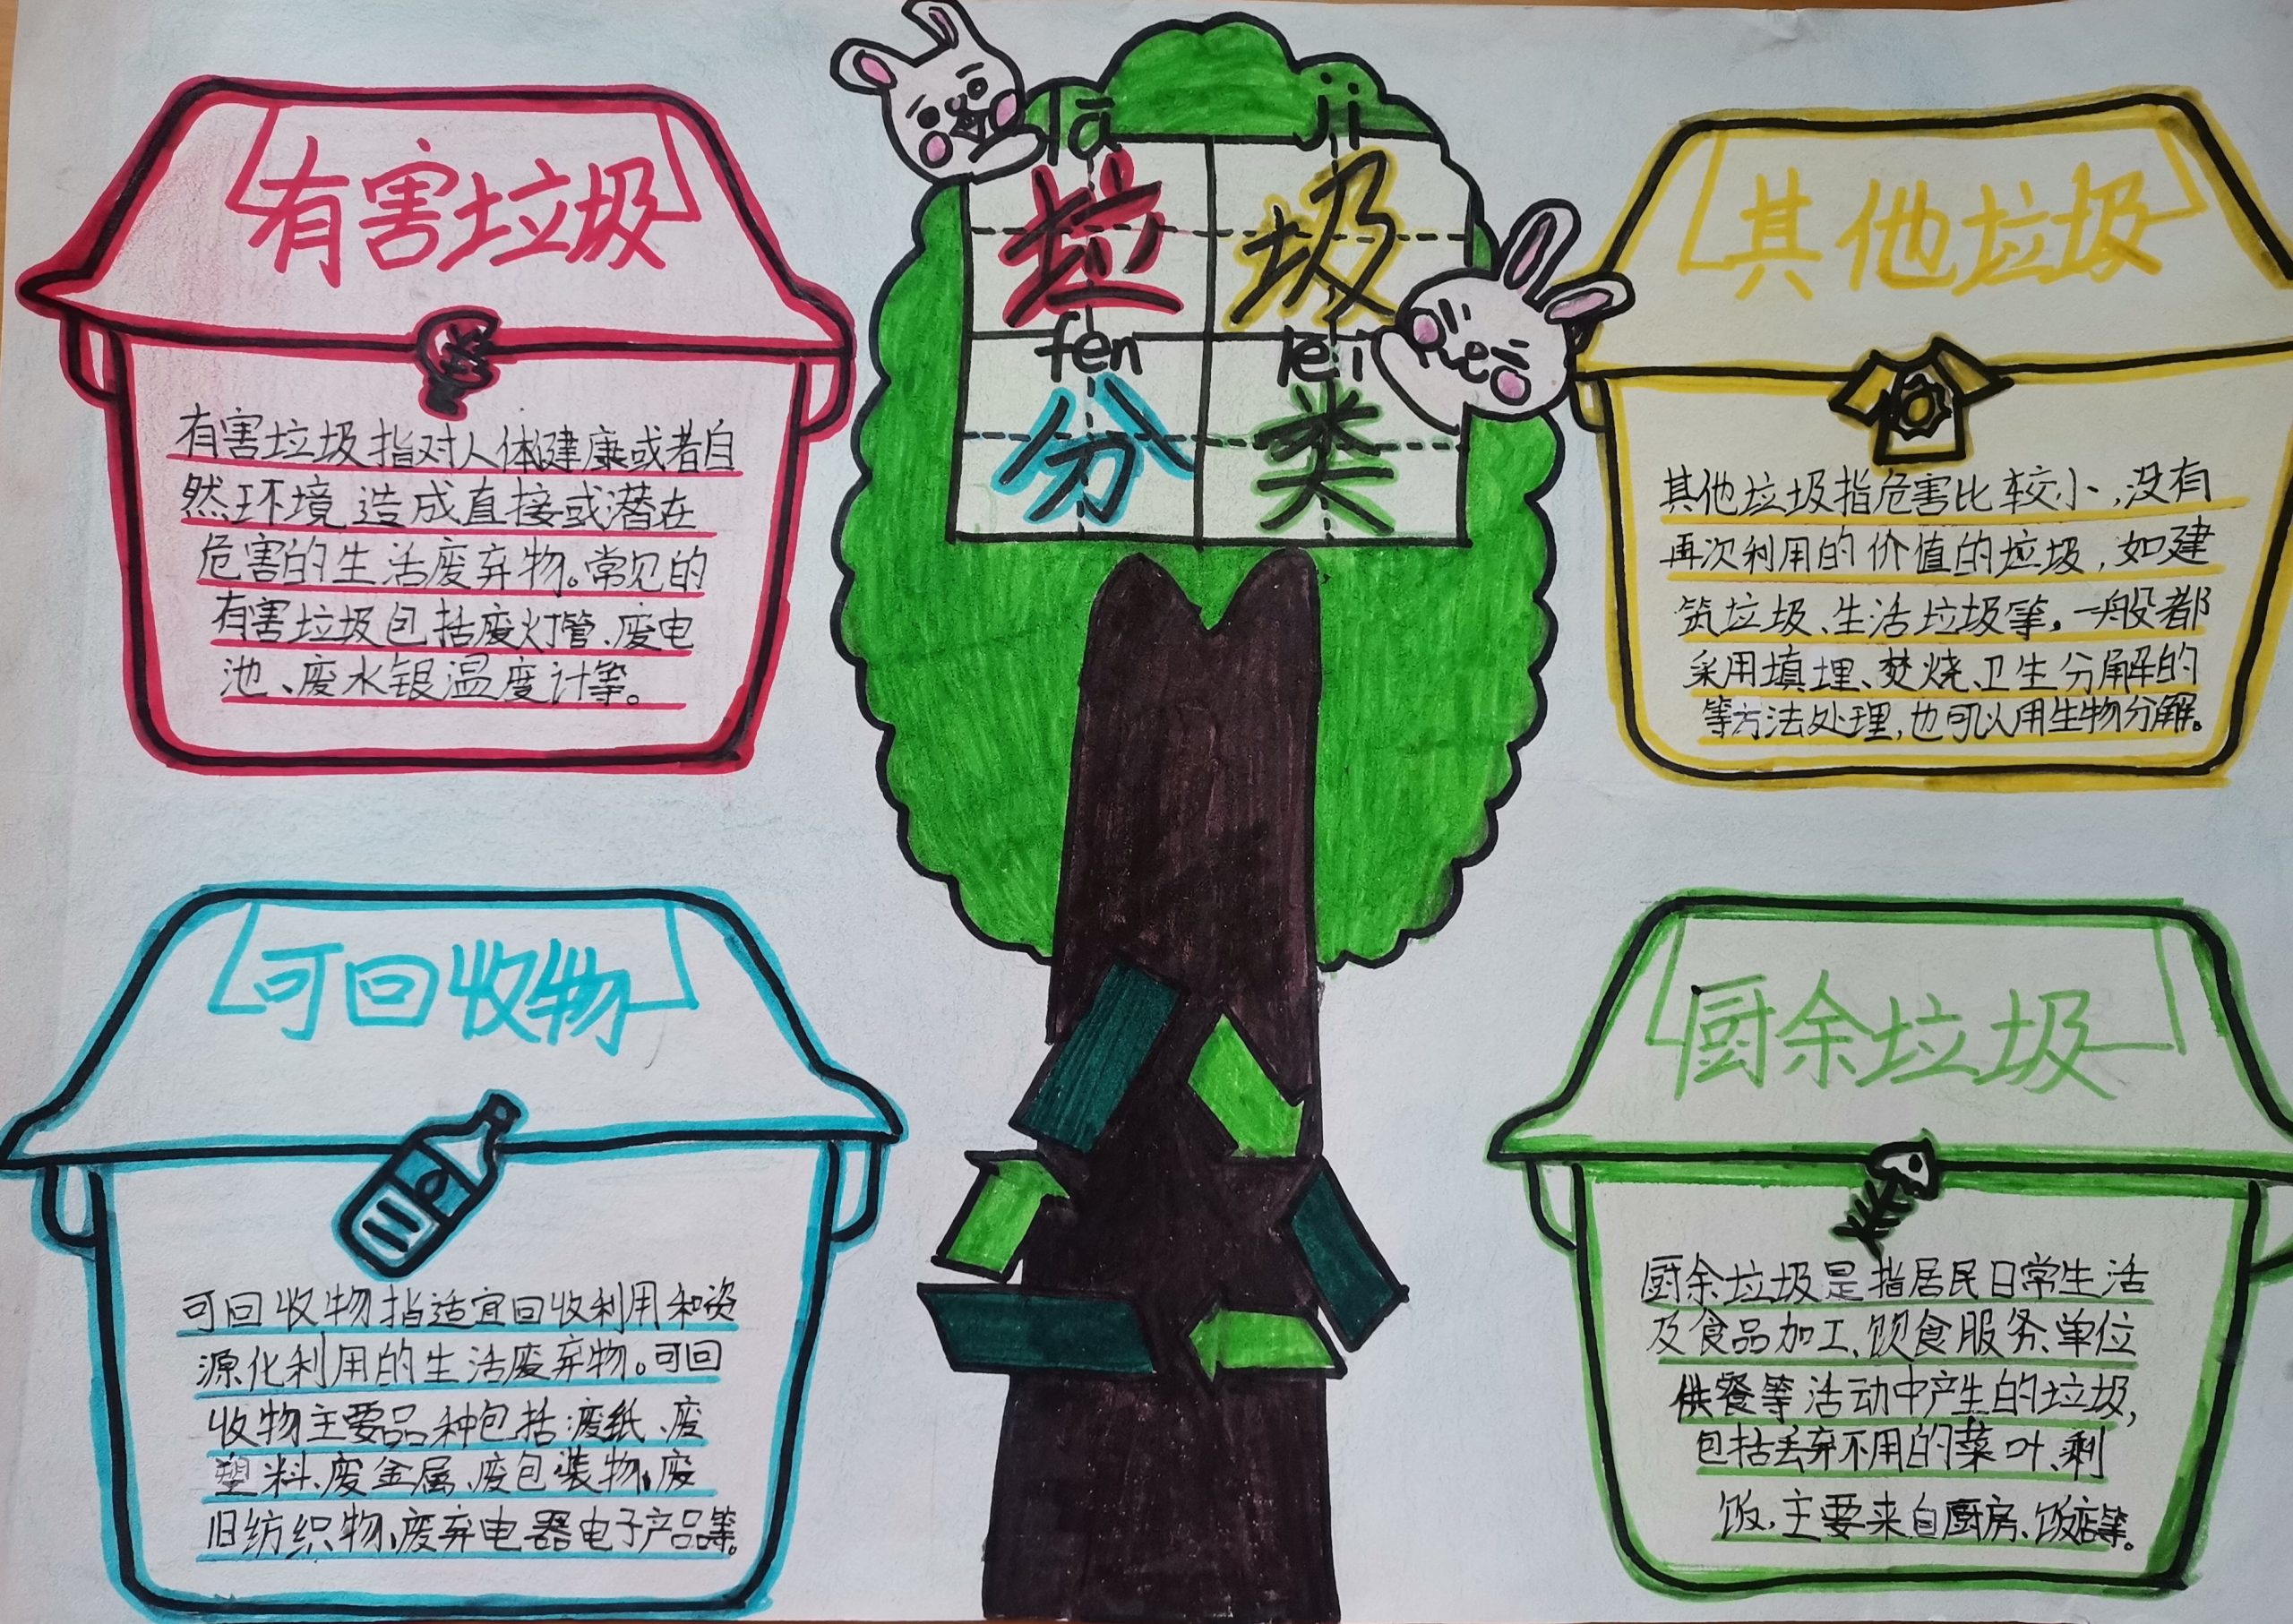 有害垃圾
有害垃圾指对人体健康或者自
然环境造成直接或潜在
危害的生活废弃物。常见的
有害垃圾包括废灯管、废电
池、废水银温度计等。
lā jī
垃圾
fēn lèi
分类
其他垃圾
其他垃圾指危害比较小,没有
再次利用的价值的垃圾,如建
筑垃圾、生活垃圾等。一般都
采用填埋、焚烧、卫生分解的
等方法处理,也可以用生物分解。
可回收物
可回收物指适宜回收利用和资
源化利用的生活废弃物。可回
收物主要品种包括:废纸、废
塑料、废金属、废包装物、废
旧纺织物、废弃电器电子产品等。
厨余垃圾
厨余垃圾是指居民日常生活
及食品加工、饮食服务、单位
供餐等活动中产生的垃圾,
包括丢弃不用的菜叶、剩
饭,主要来自厨房、饭店等。